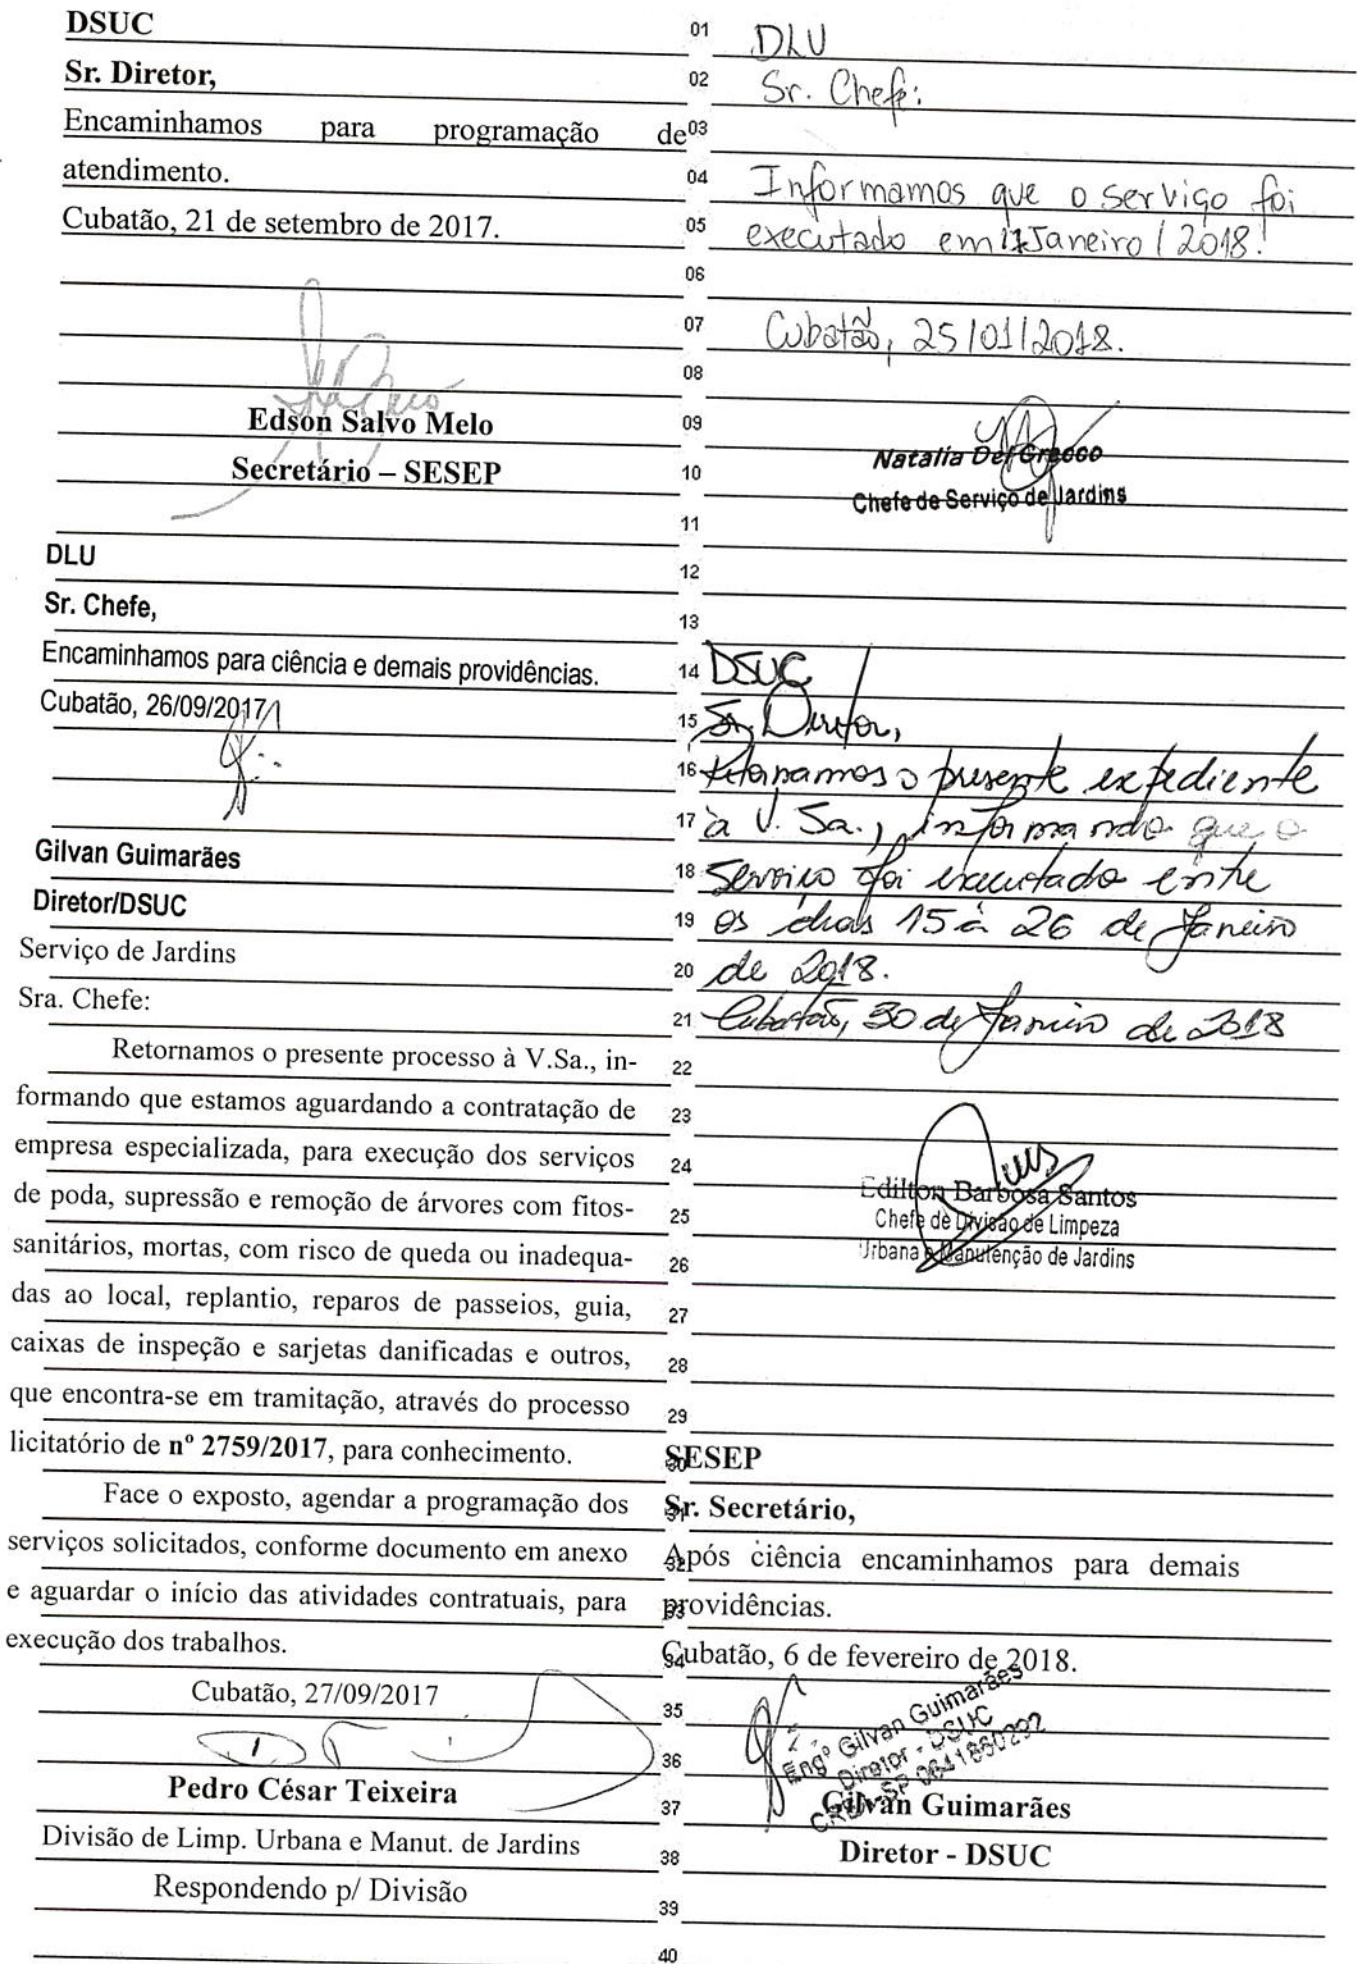 DSUC
Sr. Diretor,
Encaminhamos para programação de
atendimento.
Cubatão, 21 de setembro de 2017.
Edson Salvo Melo
Secretário – SESEP
DLU
Sr. Chefe,
Encaminhamos para ciência e demais providências.
Cubatão, 26/09/2017
Gilvan Guimarães
Diretor/DSUC
Serviço de Jardins
Sra. Chefe:
Retornamos o presente processo à V.Sa., in-
formando que estamos aguardando a contratação de
empresa especializada, para execução dos serviços
de poda, supressão e remoção de árvores com fitos-
sanitários, mortas, com risco de queda ou inadequa-
das ao local, replantio, reparos de passeios, guia,
caixas de inspeção e sarjetas danificadas e outros,
que encontra-se em tramitação, através do processo
licitatório de nº 2759/2017, para conhecimento.
Face o exposto, agendar a programação dos
serviços solicitados, conforme documento em anexo
e aguardar o início das atividades contratuais, para
execução dos trabalhos.
Cubatão, 27/09/2017
Pedro César Teixeira
Divisão de Limp. Urbana e Manut. de Jardins
Respondendo p/ Divisão
01
02
03
04
05
06
07
08
09
10
11
12
13
14
15
16
17
18
19
20
21
22
23
24
25
26
27
28
29
30
31
32
33
34
35
36
37
38
39
40
DLU
Sr. Chefe:
Informamos que o serviço foi
executado em 17 Janeiro / 2018.
Cubatão, 25/01/2018.
Natalia Del Grecco
Chefe de Serviço de Jardins
DSUC
Sr. Diretor,
Retornamos o presente expediente
à V. Sa., informando que o
serviço foi executado entre
os dias 15 à 26 de Janeiro
de 2018.
Cubatão, 30 de Janeiro de 2018
Edilton Barbosa Santos
Chefe de Divisão de Limpeza
Urbana e Manutenção de Jardins
SESEP
Sr. Secretário,
Após ciência encaminhamos para demais
providências.
Cubatão, 6 de fevereiro de 2018.
Engº Gilvan Guimarães
Diretor - DSUC
CREA-SP
Gilvan Guimarães
Diretor - DSUC